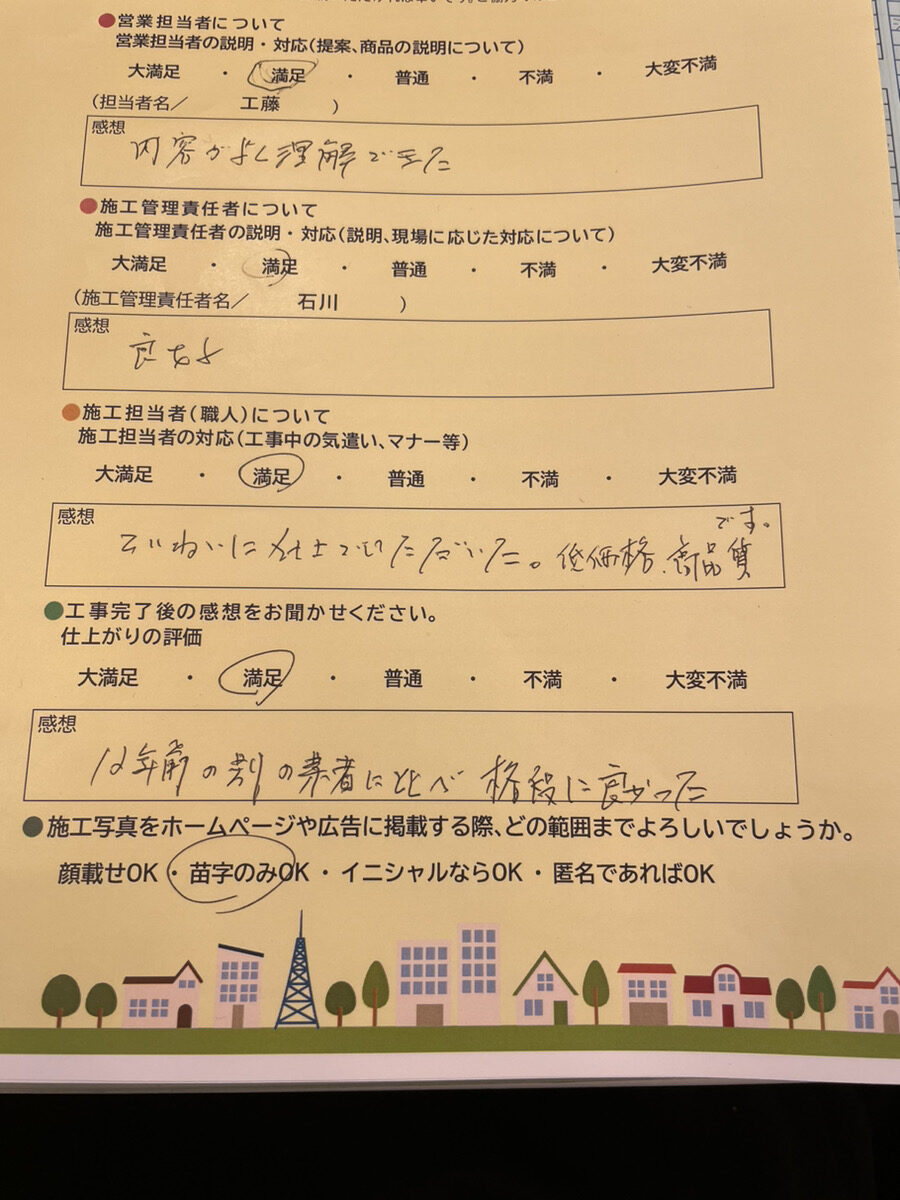 ●営業担当者について
営業担当者の説明・対応(提案、商品の説明について)
大満足 ・ 満足 ・ 普通 ・ 不満 ・ 大変不満
(担当者名／ 工藤 )
感想
内容がよく理解できた
●施工管理責任者について
施工管理責任者の説明・対応(説明、現場に応じた対応について)
大満足 ・ 満足 ・ 普通 ・ 不満 ・ 大変不満
(施工管理責任者名／ 石川 )
感想
●施工担当者(職人)について
施工担当者の対応(工事中の気遣い、マナー等)
大満足 ・ 満足 ・ 普通 ・ 不満 ・ 大変不満
感想
ていねいに仕上ていただいた。低価格、高品質
です。
●工事完了後の感想をお聞かせください。
仕上がりの評価
大満足 ・ 満足 ・ 普通 ・ 不満 ・ 大変不満
感想
12年前の別の業者に比べ 格段に良かった
●施工写真をホームページや広告に掲載する際、どの範囲までよろしいでしょうか。
顔載せOK ・ 苗字のみOK ・ イニシャルならOK ・ 匿名であればOK